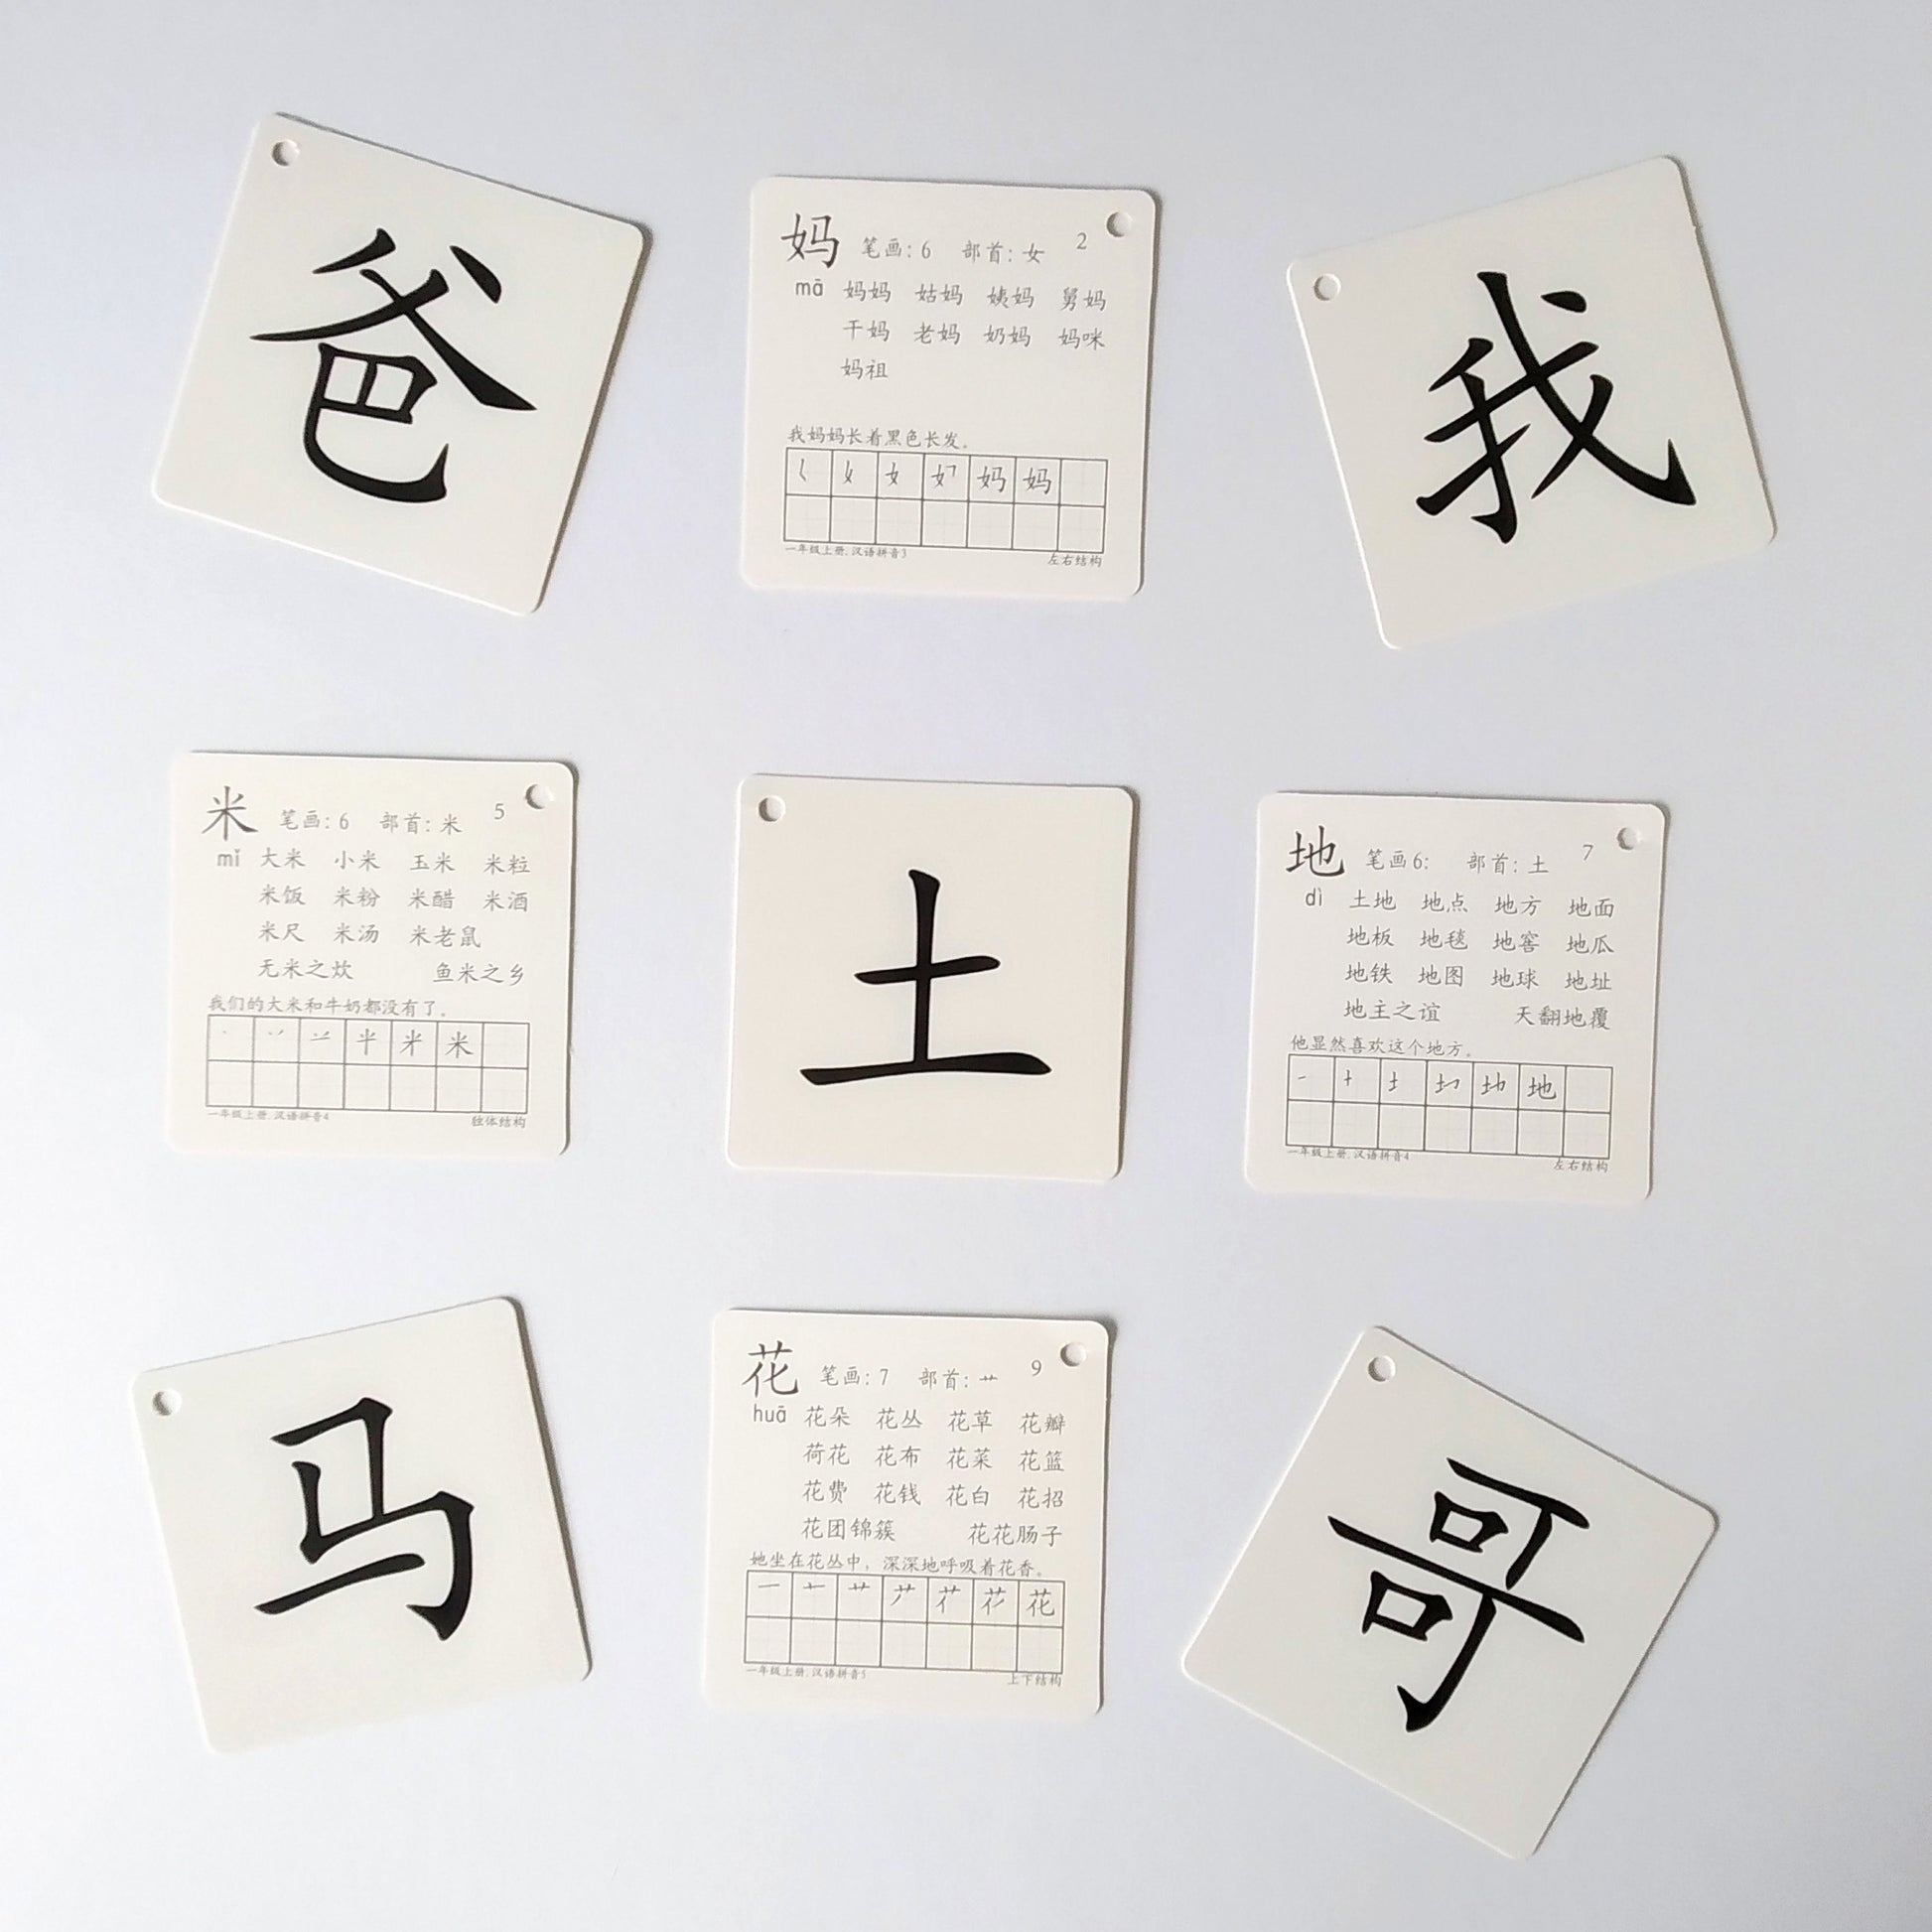 爸
妈 笔画:6 部首:女 2
mā 妈妈 姑妈 姨妈 舅妈
干妈 老妈 奶妈 妈咪
妈祖
我妈妈长着黑色长发。
妈 妈
一年级上册,汉语拼音3 左右结构
我
米 笔画:6 部首:米 5
mǐ 大米 小米 玉米 米粒
米饭 米粉 米醋 米酒
米尺 米汤 米老鼠
无米之炊 鱼米之乡
我们的大米和牛奶都没有了。
米
一年级上册,汉语拼音4 独体结构
土
地 笔画6: 部首:土 7
dì 土地 地点 地方 地面
地板 地毯 地窖 地瓜
地铁 地图 地球 地址
地主之谊 天翻地覆
他显然喜欢这个地方。
地
一年级上册,汉语拼音4 左右结构
马
花 笔画:7 部首:艹 9
huā 花朵 花丛 花草 花瓣
荷花 花布 花菜 花篮
花费 花钱 花白 花招
花团锦簇 花花肠子
她坐在花丛中,深深地呼吸着花香。
花
一年级上册,汉语拼音5 上下结构
哥